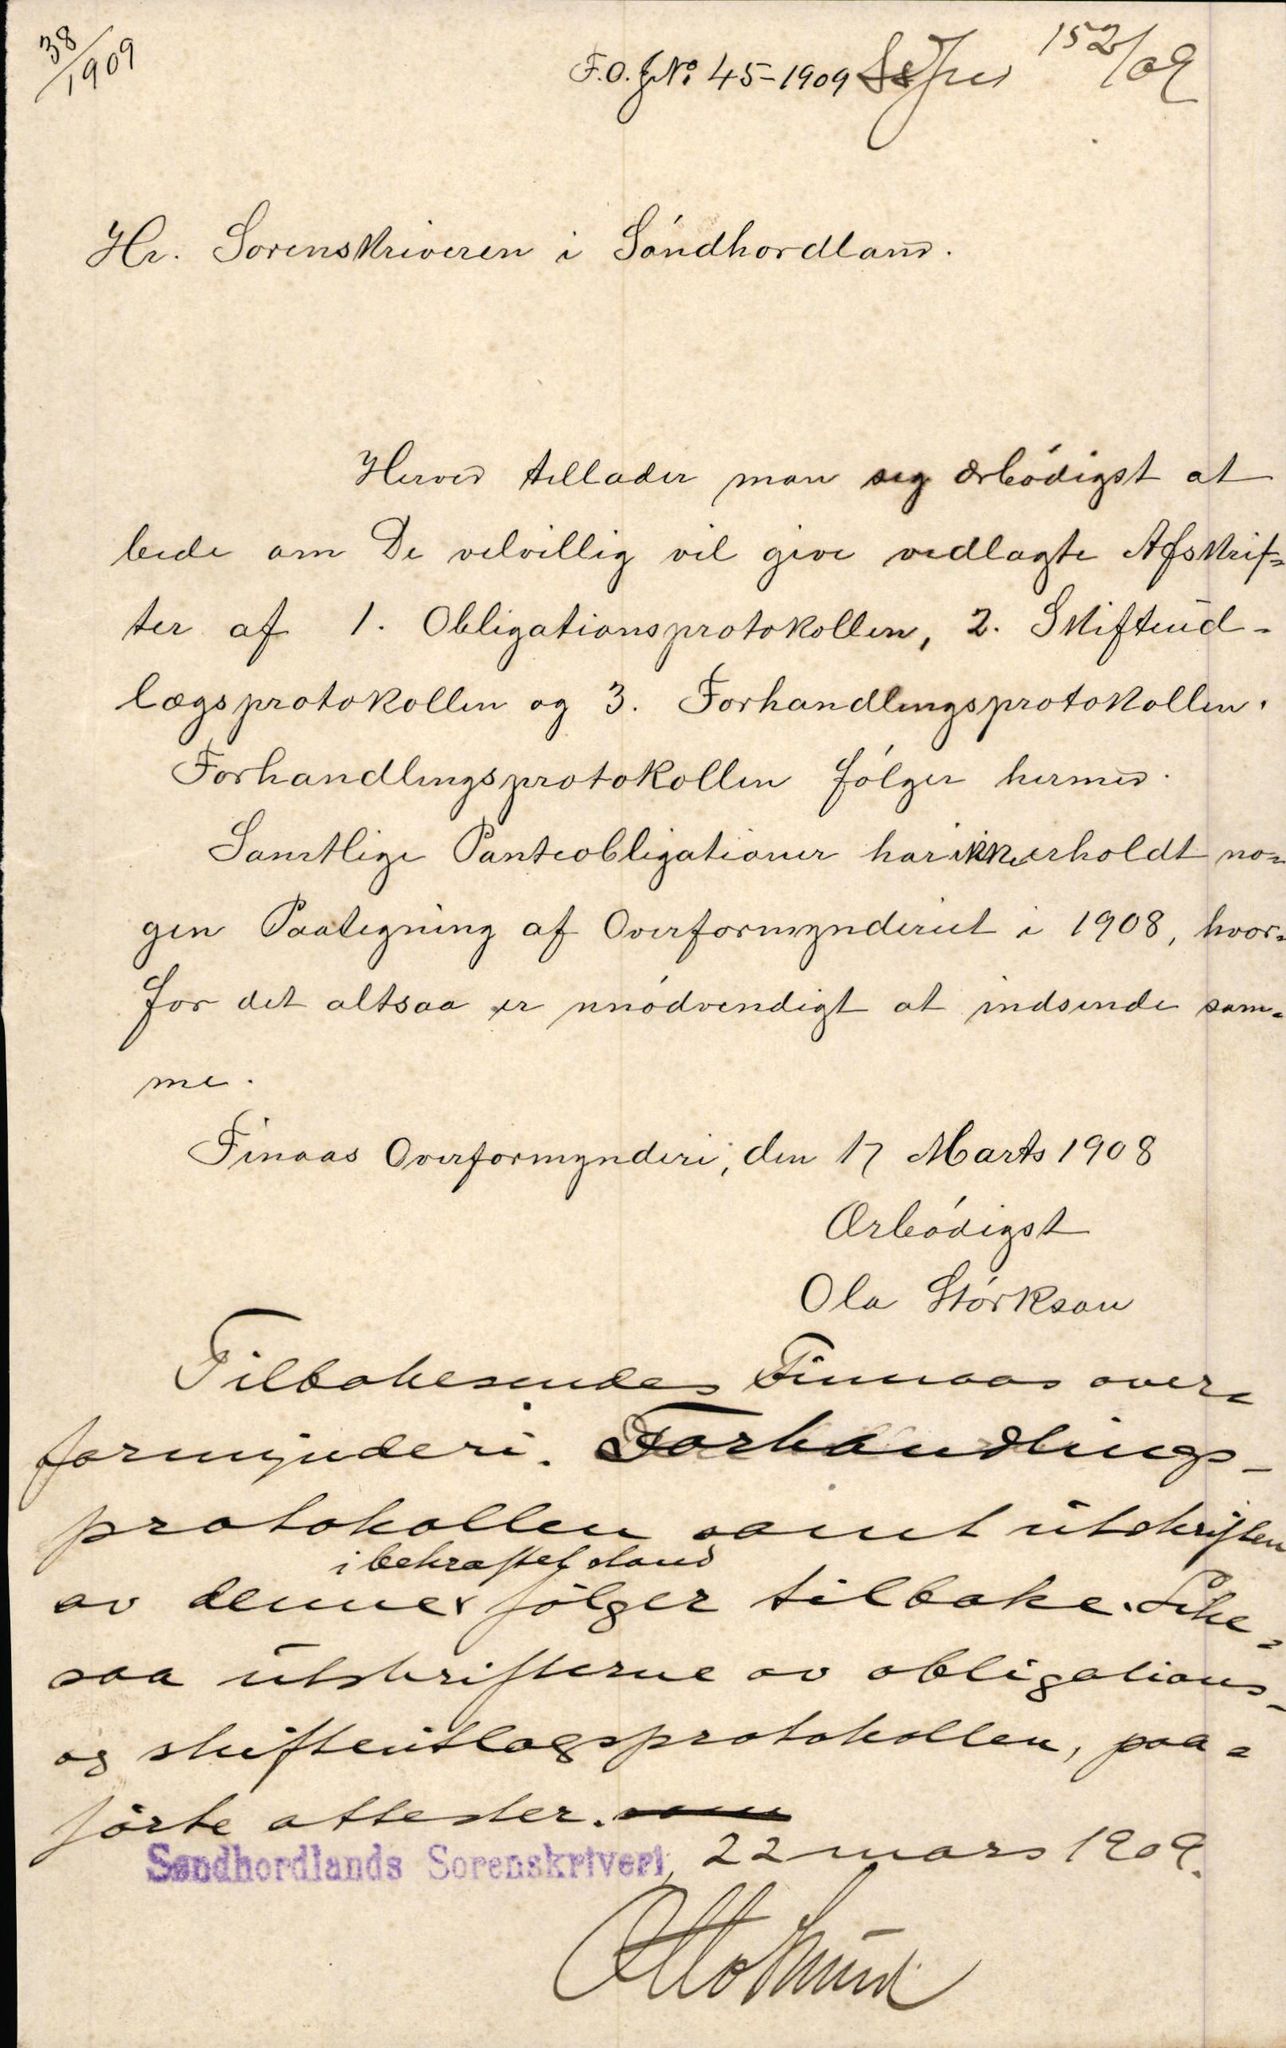 38/1909
F.O.J.No 45-1909 152/09
Hr. Sorenskriveren i Söndhordland.
Herved tillader man sig ærbödigst at
bede om De velvillig vil give vedlagte Afskrif-
ter af 1. Obligationsprotokollen, 2. Skifteud-
lægsprotokollen og 3. Forhandlingsprotokollen.
Forhandlingsprotokollen fölger hermed.
Samtlige Panteobligationer har ikke erholdt no-
gen Paategning af Overformynderiet i 1908, hvor-
for det altsaa er unödvendigt at indsende sam-
me.
Finaas Overformynderi, den 17 Marts 1908
Ærbödigst
Ola Störkson
Tilbakesendes Finnaas over-
formynderi. Forhandlings-
protokollen samt utskriften
i bekræftet stand
av denne fölger tilbake. Like-
saa utskrifterne av obligations-
og skifteutlægsprotokollen, paa-
förte attester.
Søndhordlands Sorenskriveri, 22 mars 1909.